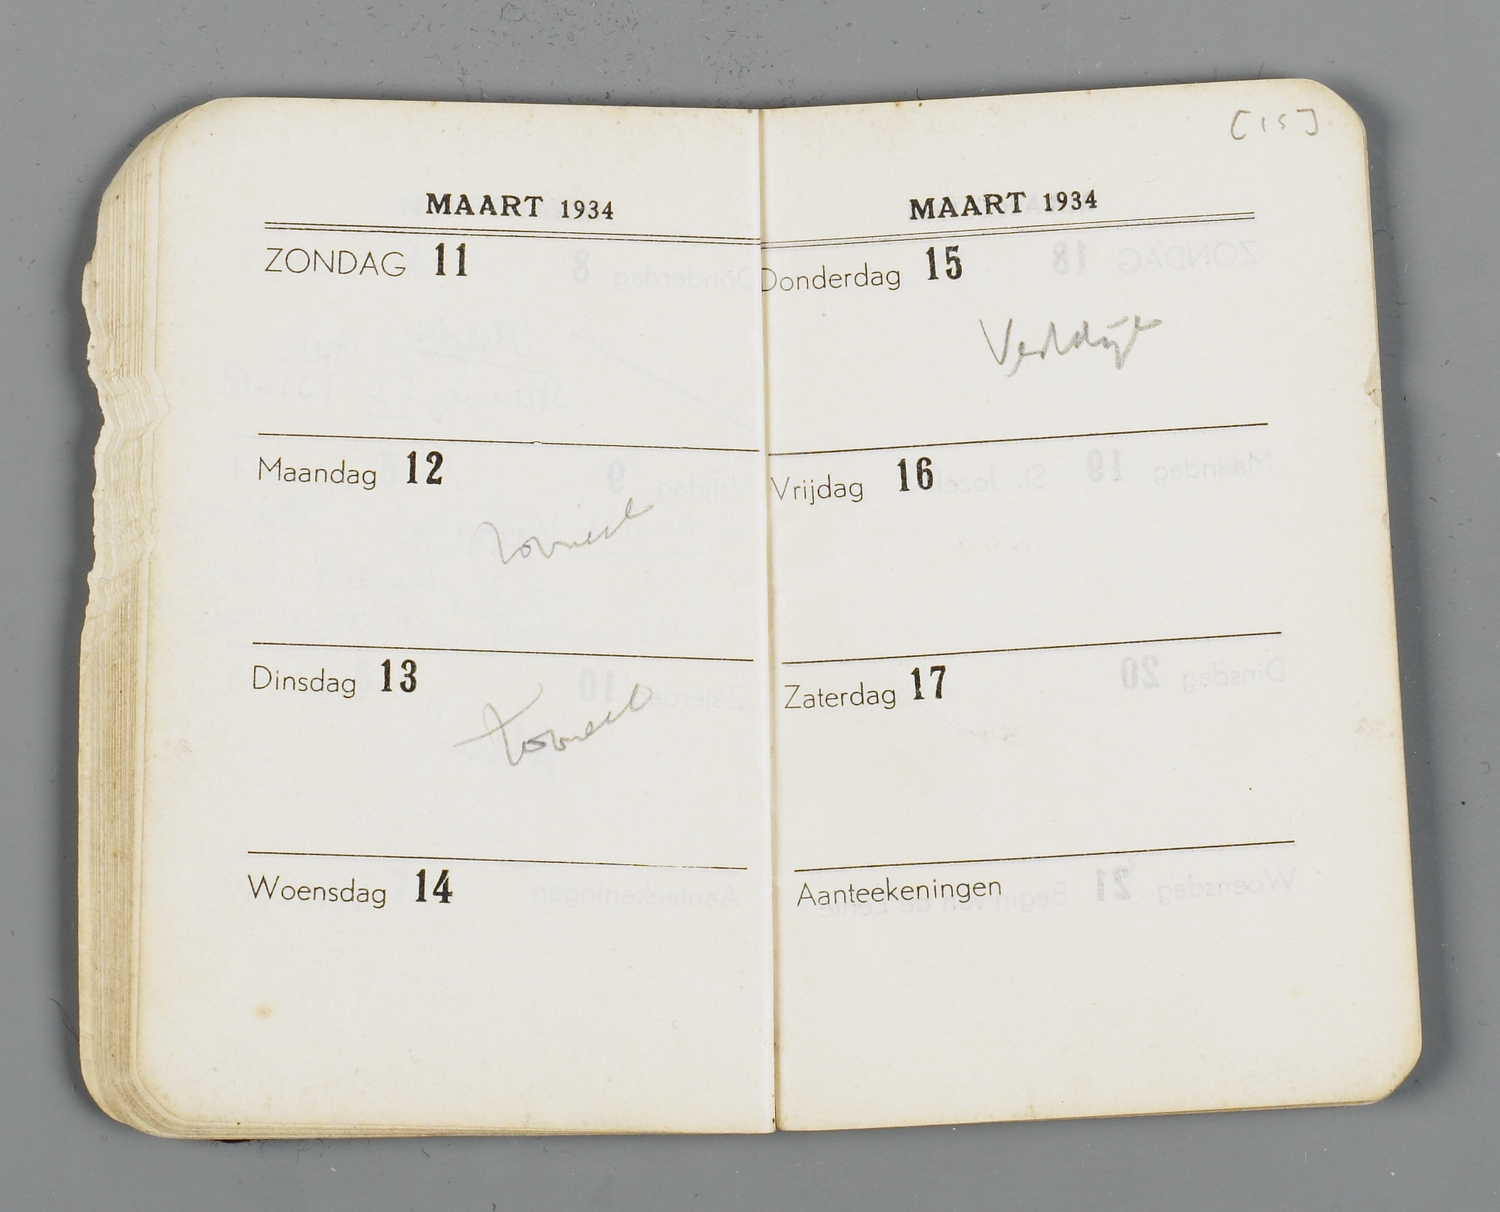 MAART 1934
ZONDAG 11
Maandag 12
toneel
Dinsdag 13
toneel
Woensdag 14
[15]
MAART 1934
Donderdag 15
Vrijdag 16
Zaterdag 17
Aanteekeningen